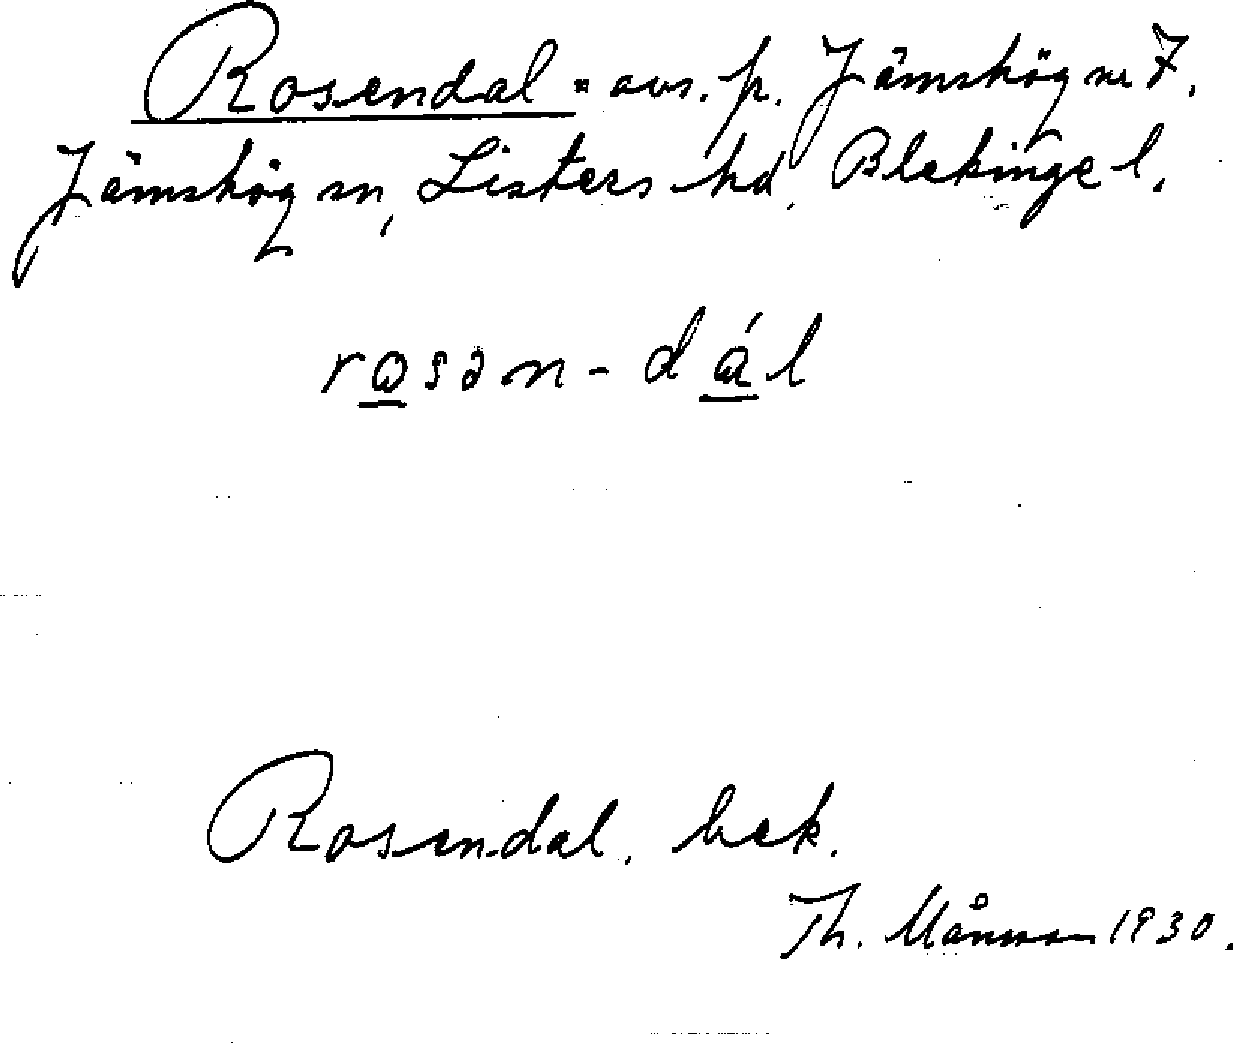 Rosendal = avs. p. Jämshög nr 7.
Jämshög sn, Listers hd, Blekinge l.
rosən-dál
Rosendal. bek.
Th. Månsson 1930.